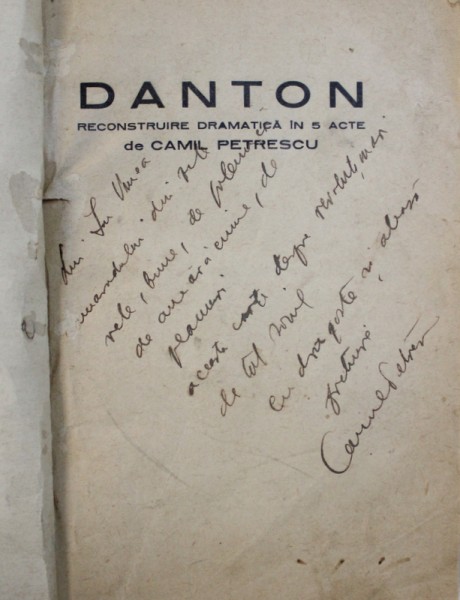 DANTON
RECONSTRUIRE DRAMATICĂ ÎN 5 ACTE
de CAMIL PETRESCU
Lui Ion Vinea
camaradului din zile
rele, bune, de polemică
de amărăciune, de
planuri
această carte despre revoluționari
de tot soiul
cu dragoste și aleasă
prețuire
Camil Petrescu